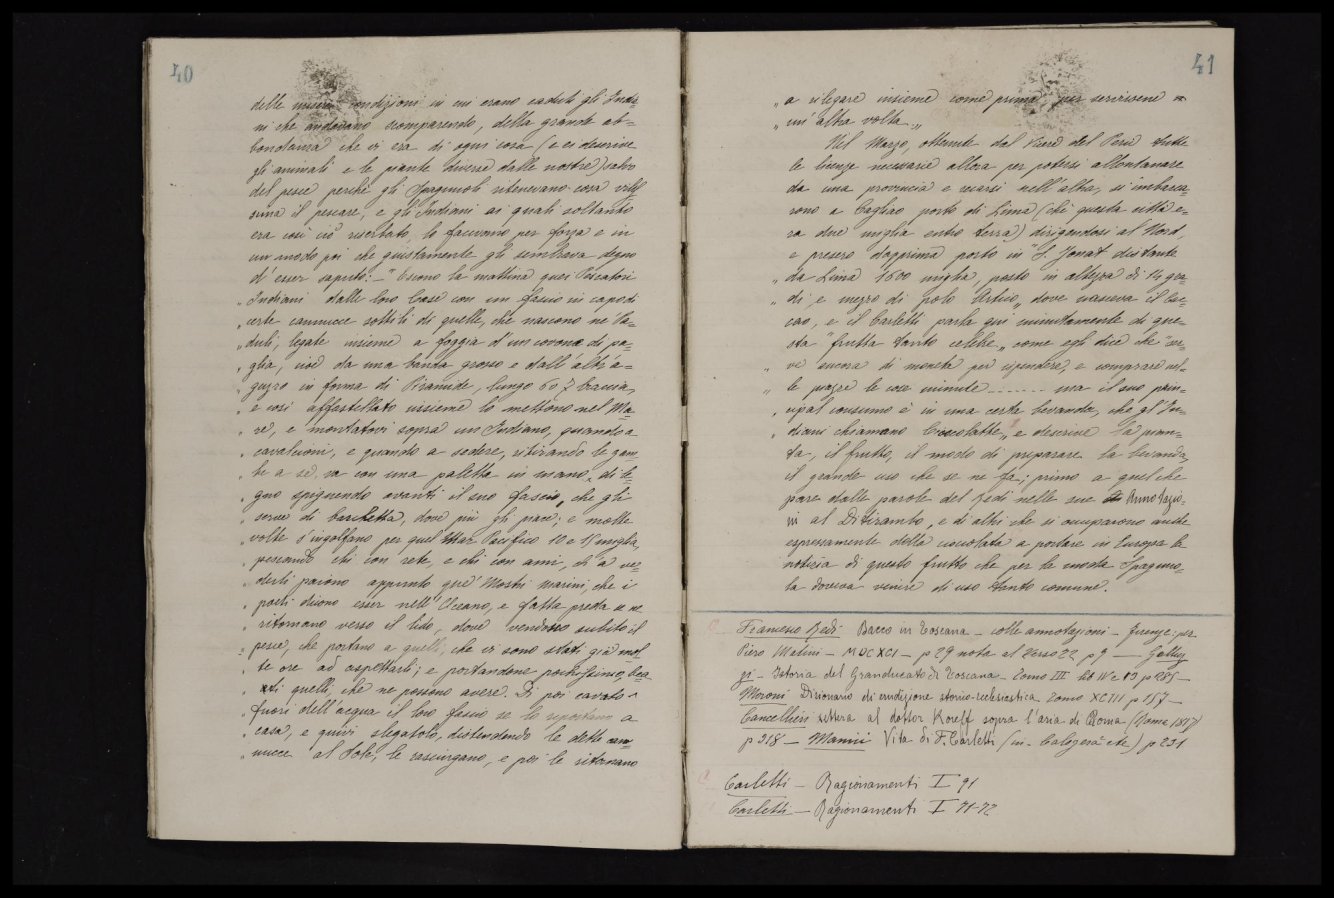 40
delle misere condizioni in cui erano caduti gli India=
ni che andavano scomparendo, della grande ab=
bondanza che vi era di ogni cosa (e ci descrive
gli animali e le piante diverse dalle nostre) salvo
del pesce perchè gli Spagnuoli ritenevano cosa vilis=
sima il pescare, e gli Indiani ai quali soltanto
era così ciò riserbato, lo facevano per forza e in
un modo poi che giustamente gli sembrava degno
d'esser saputo: — "Escono la mattina quei Pescatori
" Indiani dalle loro Case con un fascio in capo di
" certe cannucce sottili di quelle, che nascono ne' Pa=
" duli, legate insieme a foggia d'un covone di pa=
" glia, cioè da una banda grosso e dall'altra a=
" guzzo in forma di Piramide, lungo 6 o 7 braccia,
" e così affastellato insieme lo mettono nel Ma=
" re, e montatovi sopra un Indiano, quando a
" cavalcioni, e quando a sedere, ritirando le gam=
" be a sè, va con una paletta in mano di le=
" gno spignendo avanti il suo fascio, che gli
" serve di barchetta, dove più gli piace; e molte
" volte s'ingolfano per quel Mar Pacifico 10 e 15 miglia,
" pescando chi con rete, e chi con ami, ch'a ve=
" derli paiono appunto que' Mostri marini, che i
" poeti dicono esser nell'Oceano, e fatta preda se ne
" ritornano verso il lido, dove vendono subito il
" pesce, che portano a quelli, che vi sono stati già mol
" te ore ad aspettarli; e portandone pochissimo, bea
" ti quelli, che ne possono avere. Di poi cavato
" fuori dell'acqua il loro fascio se lo riportano a
" casa, e quivi slegatolo, distendendo le dette can=
" nucce al sole, le rasciugano, e poi le ritornano
41
" a rilegare insieme come prima per servirsene
" un'altra volta."
Nel Marzo, ottenute dal Vicerè del Perù tutte
le licenze necessarie allora per potersi allontanare
da una provincia e recarsi nell'altra, si imbarca=
rono a Cagliao porto di Lima (chè questa città e=
ra due miglia entro terra) dirigendosi al Nord,
e presero dapprima porto in "S. Jonat distante
" da Lima 1600 miglia, posto in altezza di 14 gra=
" di e mezzo di polo Artico" dove nasceva il Cac=
cao, e il Carletti parla qui minutamente di que=
sta "frutta tanto celebre" come egli dice che "ser=
" ve ancora di moneta per ispendere, e comprare nel=
" le piazze le cose minute ........ ma il suo prin=
" cipal consumo è in una certa bevanda, che gl'In=
" diani chiamano Cioccolatte" e descrive la pian=
ta, il frutto, il modo di preparare la bevanda,
il grande uso che se ne fa; primo a quel che
pare dalle parole del Redi nelle sue Annotazio=
ni al Ditirambo, e di altri che si occuparono anche
espressamente della cioccolata a portare in Europa la
notizia di questo frutto che per la moda Spagnuo=
la doveva venire di uso tanto comune.
Francesco Redi — Bacco in Toscana — colle annotazioni — Firenze: per
Piero Matini — MDCXCI — p 29 nota al verso 22 p 9 — Galluz
zi — Istoria del Granducato di Toscana — Tomo III p 285 —
Moroni Dizionario di erudizione storico-ecclesiastica Tomo XCIII p 157 —
Cancellieri Lettera al dottor Koreff sopra l'aria di Roma (Roma 1817)
p 318 — Manni Vita di F. Carletti (in Calogerà etc) p 231
Carletti — Ragionamenti I 91
Carletti — Ragionamenti I 71-72